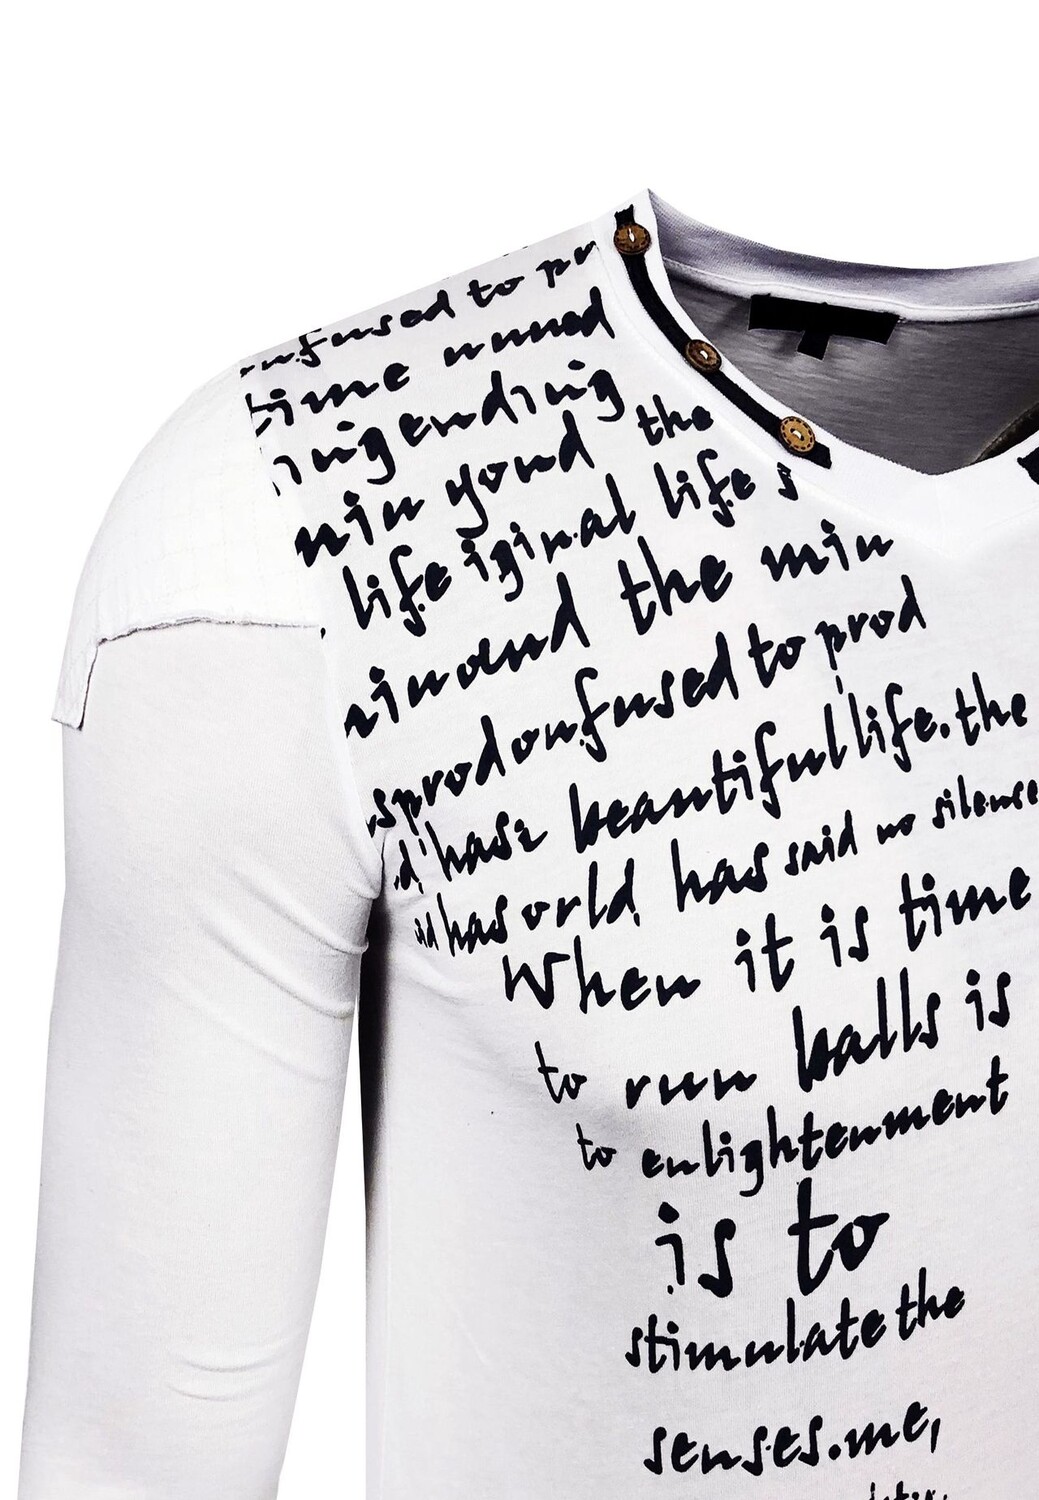 onfused to pr
time unund
ingending
min yond the
life iginal life s
minound the min
sprodonfused to prod
d' hase beautiful life. the
id has orld has said no silense
When it is time
to run balls is
to enlightenment
is to
stimulate the
senses.me,